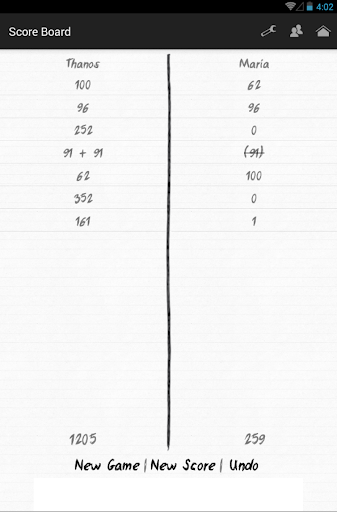 4:02
Score Board
Thanos Maria
100 62
96 96
252 0
91 + 91 (91)
62 100
352 0
161 1
1205 259
New Game | New Score | Undo